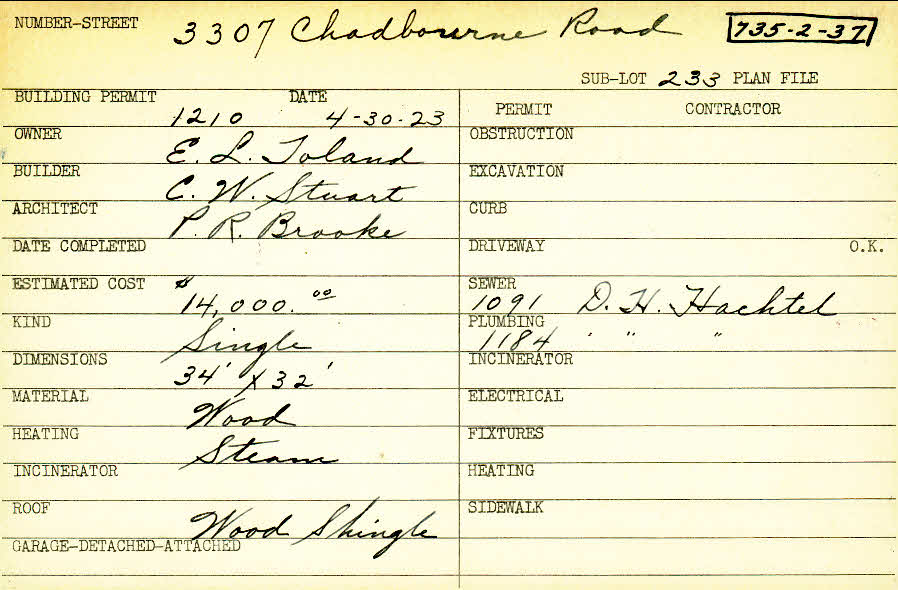 NUMBER-STREET 3307 Chadbourne Road 735-2-37
SUB-LOT 233 PLAN FILE
BUILDING PERMIT 1210 DATE 4-30-23
PERMIT CONTRACTOR
OWNER E. L. Toland
OBSTRUCTION
BUILDER C. W. Stuart
EXCAVATION
ARCHITECT P. R. Brooke
CURB
DATE COMPLETED
DRIVEWAY O.K.
ESTIMATED COST $14,000.00
SEWER 1091 D. H. Hachtel
KIND Single
PLUMBING 1184 " " "
DIMENSIONS 34' x 32'
INCINERATOR
MATERIAL Wood
ELECTRICAL
HEATING Steam
FIXTURES
INCINERATOR
HEATING
ROOF Wood Shingle
SIDEWALK
GARAGE-DETACHED-ATTACHED